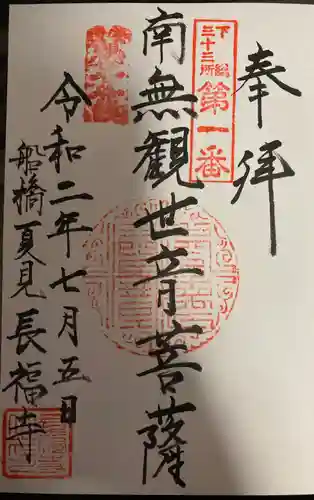 奉拝
下総三十三所
第一番
南無観世音菩薩
令和二年七月五日
船橋夏見長福寺